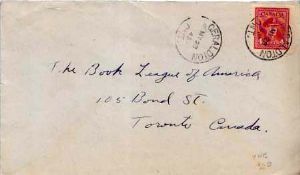 GERALDTON
CANADA
The Book League of America
105 Bond St.
Toronto Canada.